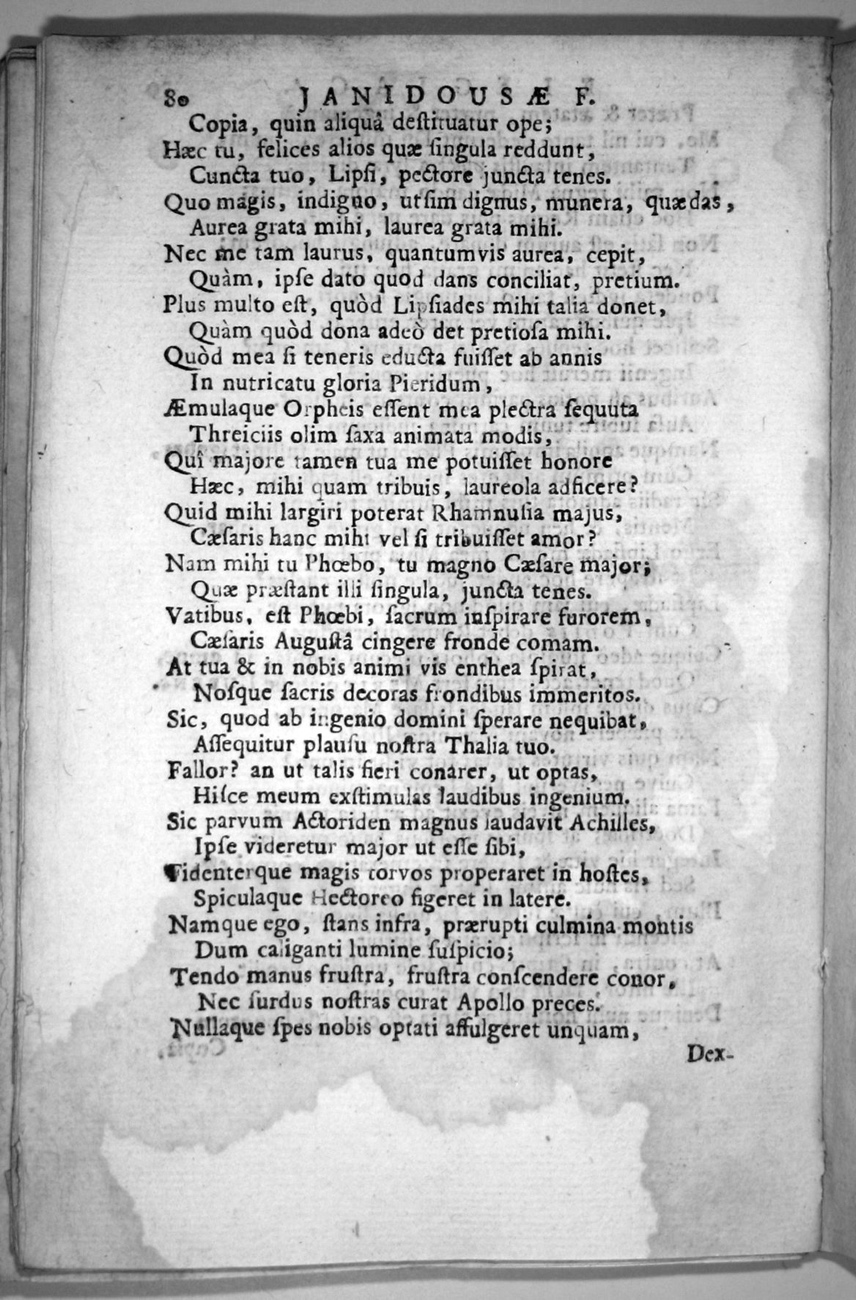 80 JANI DOUSÆ F.
Copia, quin aliquâ deſtituatur ope;
Hæc tu, felices alios quæ ſingula reddunt,
Cuncta tuo, Lipſi, pectore juncta tenes.
Quo magis, indigno, ut ſim dignus, munera, quæ das,
Aurea grata mihi, laurea grata mihi.
Nec me tam laurus, quantumvis aurea, cepit,
Quàm, ipſe dato quod dans conciliat, pretium.
Plus multo eſt, quòd Lipſiades mihi talia donet,
Quàm quòd dona adeò det pretioſa mihi.
Quòd mea ſi teneris educta fuiſſet ab annis
In nutricatu gloria Pieridum,
Æmulaque Orpheis eſſent mea plectra ſequuta
Threiciis olim ſaxa animata modis,
Quî majore tamen tua me potuiſſet honore
Hæc, mihi quam tribuis, laureola adficere?
Quid mihi largiri poterat Rhamnuſia majus,
Cæſaris hanc mihi vel ſi tribuiſſet amor?
Nam mihi tu Phœbo, tu magno Cæſare major;
Quæ præſtant illi ſingula, juncta tenes.
Vatibus, eſt Phœbi, ſacrum inſpirare furorem,
Cæſaris Auguſtâ cingere fronde comam.
At tua & in nobis animi vis enthea ſpirat,
Noſque ſacris decoras frondibus immeritos.
Sic, quod ab ingenio domini ſperare nequibat,
Aſſequitur plauſu noſtra Thalia tuo.
Fallor? an ut talis fieri conarer, ut optas,
Hiſce meum exſtimulas laudibus ingenium.
Sic parvum Actoriden magnus laudavit Achilles,
Ipſe videretur major ut eſſe ſibi,
Fidenterque magis torvos properaret in hoſtes,
Spiculaque Hectoreo figeret in latere.
Namque ego, ſtans infra, prærupti culmina montis
Dum caliganti lumine ſuſpicio;
Tendo manus fruſtra, fruſtra conſcendere conor,
Nec ſurdus noſtras curat Apollo preces.
Nullaque ſpes nobis optati affulgeret unquam,
Dex-